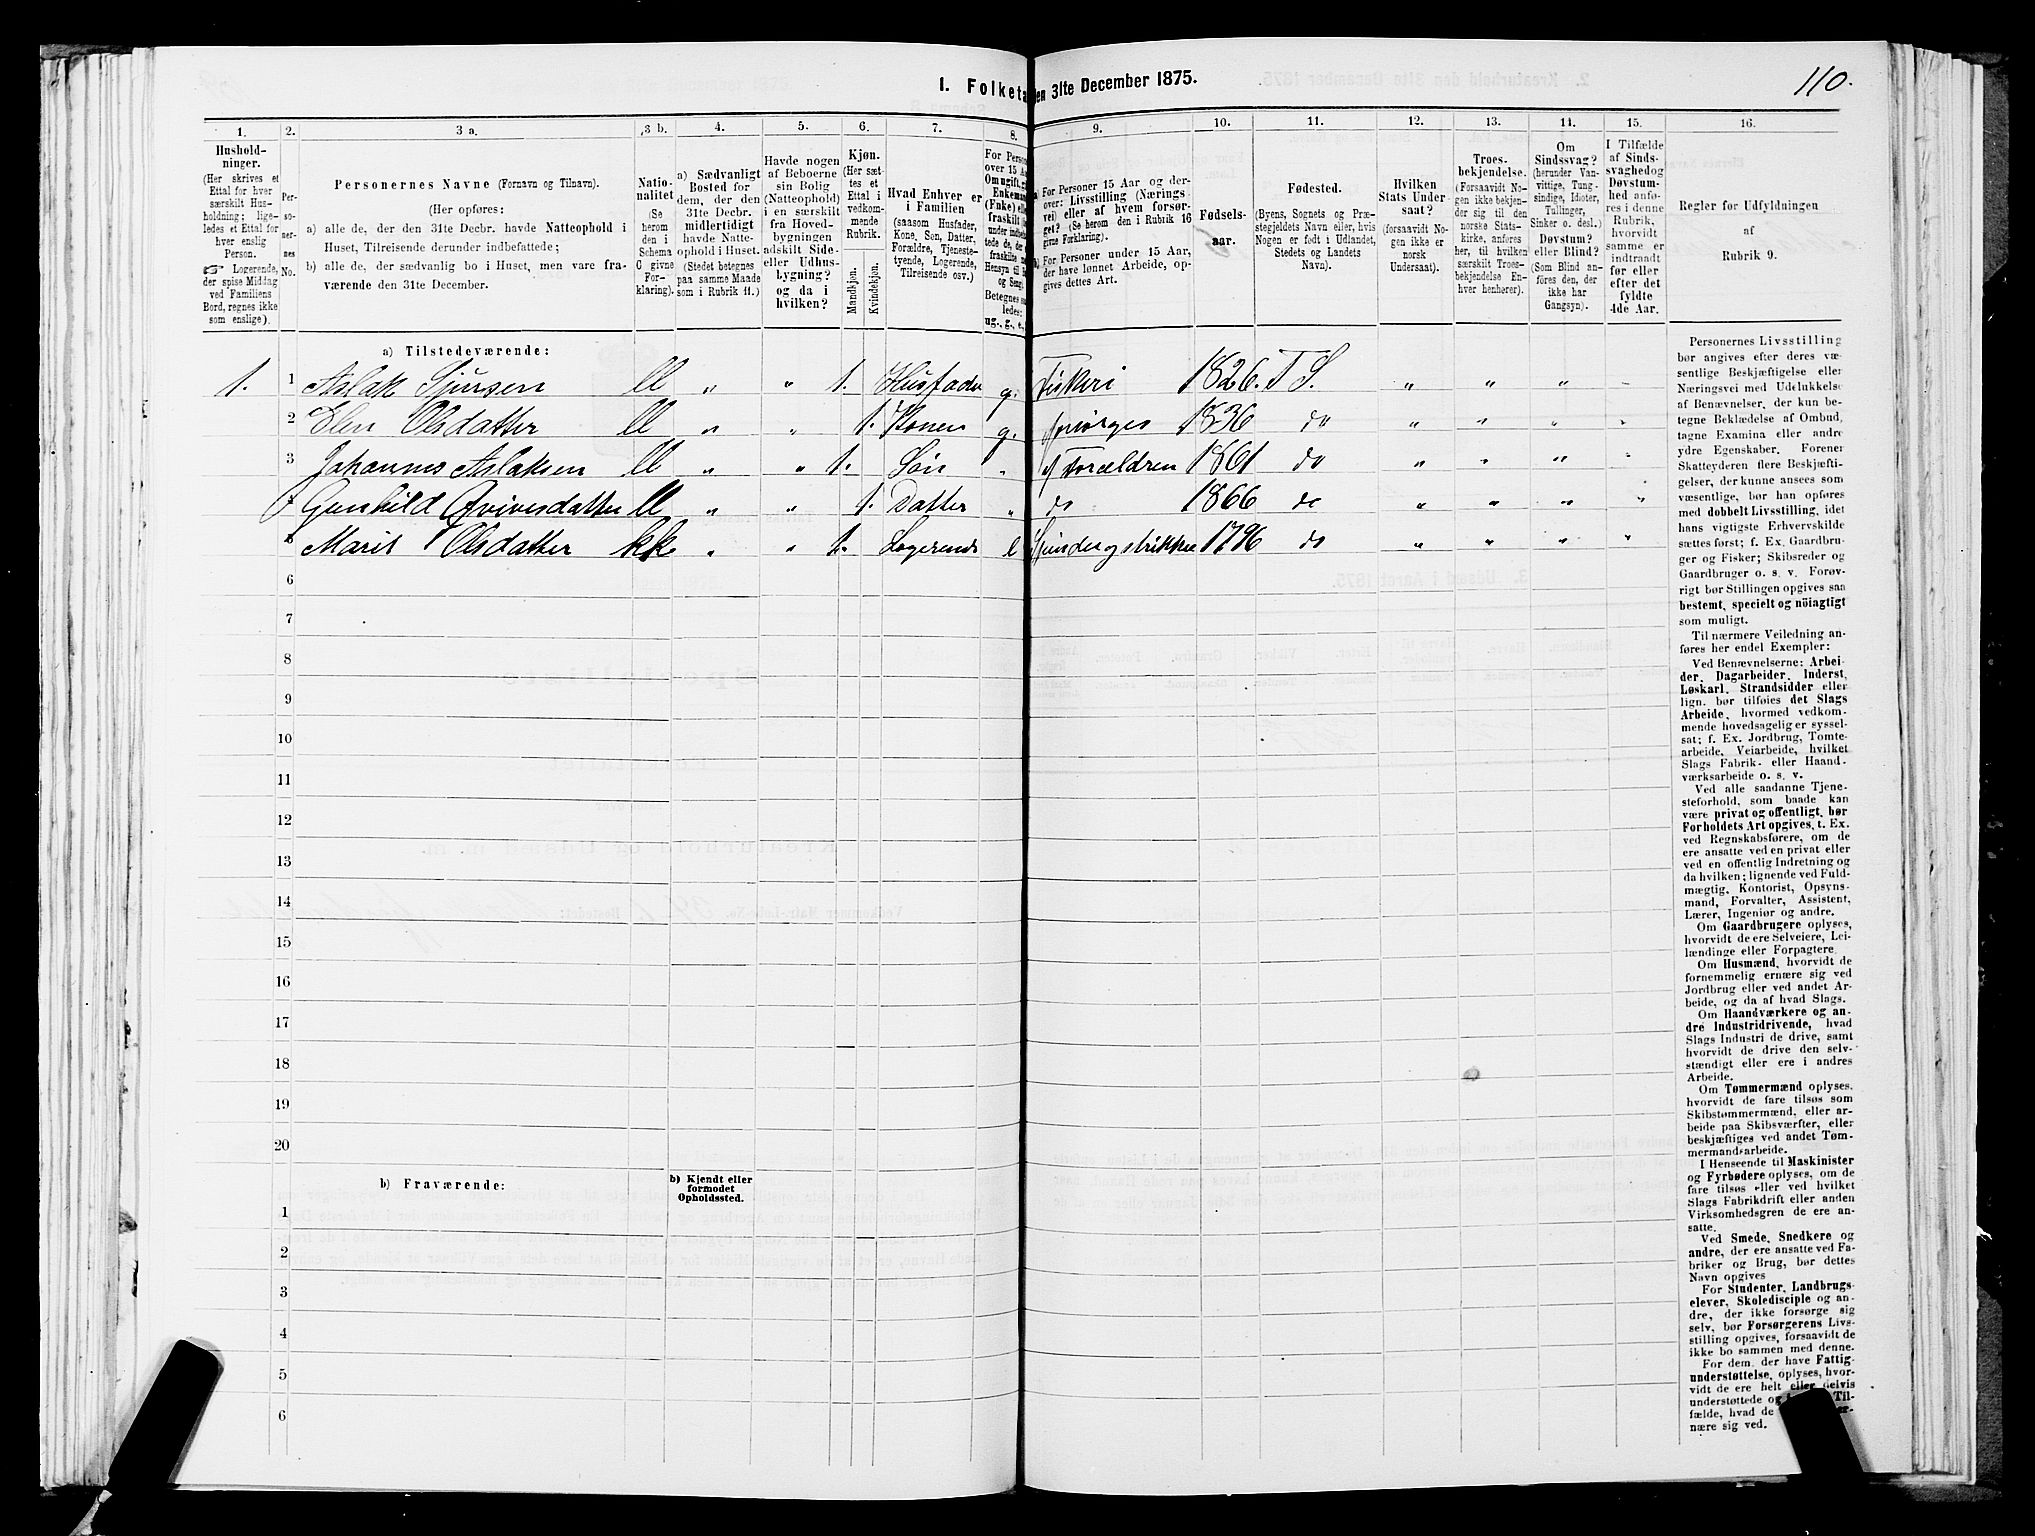 110.
I. Folketa en 31te December 1875.
1. 2. 3 a. 3 b. 4. 5. 6. 7. 8. 9. 10. 11. 12. 13. 14. 15. 16.
Hushold-
ninger.
(Her skrives et
Ettal for hver
særskilt Hus-
holdning; lige-
ledes et Ettal for
hver enslig
Person.
☞ Logerende,
der spise Middag
ved Familiens
Bord, regnes ikke
som enslige).
Per-
so-
ner-
nes
No.
Personernes Navne (Fornavn og Tilnavn).
(Her opføres:
a) alle de, der den 31te Decbr. havde Natteophold i
Huset, Tilreisende derunder indbefattede;
b) alle de, der sædvanlig bo i Huset, men vare fra-
værende den 31te December.
Natio-
nalitet
(Se
herom
den i
Schema
C givne
For-
klaring).
a) Sædvanligt
Bosted for
dem, der den
31te Decbr.
midlertidigt
havde Natte-
ophold i Huset.
(Stedet betegnes
paa samme Maade
som i Rubrik 11.)
Havde nogen
af Beboerne
sin Bolig
(Natteophold)
i en særskilt
fra Hoved-
bygningen
adskilt Side-
eller Udhus-
bygning?
og da i
hvilken?
Kjøn.
(Her sæt-
tes et
Ettal i
vedkom-
mende
Rubrik.
Mandkjøn.
Kvindekjøn.
Hvad Enhver er
i Familien
(saasom Husfader,
Kone, Søn, Datter,
Forældre, Tjeneste-
tyende, Logerende,
Tilreisende osv.)
For Person
over 15 Aar
Om ugift, gi
Enkeman
(Fnke) elle
fraskilt
Betegnes saa
ledes:
ug., g., e.,
For Personer 15 Aar og der-
over: Livsstilling (Nærings-
vei) eller af hvem forsør-
get? (Se herom den i Rubrik 16
givne Forklaring).
For Personer under 15 Aar,
der have lønnet Arbeide, op-
gives dettes Art.
Fødsels-
aar.
Fødested.
(Byens, Sognets og Præ-
stegjeldets Navn eller, hvis
Nogen er født i Udlandet,
Stedets og Landets
Navn).
Hvilken
Stats Under-
saat?
(forsaavidt No-
gen ikke er
norsk
Undersaat).
Troes-
bekjendelse.
(Forsaavidt No-
gen ikke bekjen-
der sig til den
norske Stats-
kirke, anføres
her, til hvilken
særskilt Troes-
bekjendelse En-
hver henhører).
Om
Sindssvag?
(herunder Van-
vittige, Tung-
sindige, Idioter,
Tullinger,
Sinker o. desl.)
Døvstum?
eller Blind?
(Som Blind an-
føres den, der
ikke har
Gangsyn).
I Tilfælde
af Sinds-
svaghed og
Døvstum-
hed anfø-
res i denne
Rubrik,
hvorvidt
samme er
indtraadt
før eller
efter det
fyldte
4de Aar.
Regler for Udfyldningen
af
Rubrik 9.
a) Tilstedeværende:
1. 1 Aslak Sjursen ll „ „ 1. Husfader g. Fiskeri 1826. T S. „ „ „ „
2 Elen Olsdatter ll „ „ 1. Konen g. forsørges 1836 do „ „ „ „
3 Johannes Aslaksen ll „ „ 1. Søn „ af Forældren 1861 do „ „ „ „
4 Gunhild ll „ „ 1. Datter „ do 1866 do „ „ „ „
5 Marit Olsdatter kk „ „ 1. Logerende e Spinder og strikker 1796 do „ „ „ „
6
7
8
9
10
11
12
13
14
15
16
17
18
19
20
b) Fraværende:
b) Kjendt eller
formodet
Opholdssted.
1
2
3
4
5
6
Personernes Livsstilling
bør angives efter deres væ-
sentlige Beskjæftigelse eller
Næringsvei med Udelukkelse
af Benævnelser, der kun be-
tegne Beklædelse af Ombud,
tagne Examina eller andre
ydre Egenskaber. Forener
Skatteyderen flere Beskjæfti-
gelser, der kunne ansees som
væsentlige, bør han opføres
med dobbelt Livsstilling, idet
hans vigtigste Erhvervskilde
sættes først; f. Ex. Gaardbru-
ger og Fisker; Skibsreder og
Gaardbruger o. s. v. Forøv-
rigt bør Stillingen opgives saa
bestemt, specielt og nöiagtigt
som muligt.
Til nærmere Veiledning an-
føres her endel Exempler:
Ved Benævnelserne: Arbei-
der, Dagarbeider, Inderst,
Løskarl, Strandsidder eller
lign. bør tilføies det Slags
Arbeide, hvormed vedkom-
mende hovedsagelig er syssel-
sat; f. Ex. Jordbrug, Tomte-
arbeide, Veiarbeide, hvilket
Slags Fabrik- eller Haand-
værksarbeide o. s. v.
Ved alle saadanne Tjene-
steforhold, som baade kan
være privat og offentligt, bør
Forholdets Art opgives, t. Ex.
ved Regnskabsførere, om de
ere ansatte ved en privat eller
ved en offentlig Indretning og
da hvilken; lignende ved Fuld-
mægtig, Kontorist, Opsyns-
mand, Forvalter, Assistent,
Lærer, Ingeniør og andre.
Om Gaardbrugere oplyses,
hvorvidt de ere Selveiere, Lei-
lændinge eller Forpagtere
Om Husmænd, hvorvidt de
fornemmelig ernære sig ved
Jordbrug eller ved andet Ar-
beide, og da af hvad Slags.
Om Haandværkere og an-
dre Industridrivende, hvad
Slags Industri de drive, samt
hvorvidt de drive den selv-
stændigt eller ere i andres
Arbeide.
Om Tømmermænd oplyses,
hvorvidt de fare tilsøs som
Skibstømmermænd, eller ar-
beide paa Skibsværfter, eller
beskjæftiges ved andet Tøm-
mermandsarbeide.
I Henseende til Maskinister
og Fyrbødere oplyses, om de
fare tilsøs eller ved hvilket
Slags Fabrikdrift eller anden
Virksomhedsgren de ere an-
satte.
Ved Smede, Snedkere og
andre, der ere ansatte ved Fa-
briker og Brug, bør dettes
Navn opgives
For Studenter, Landbrugs-
elever, Skoledisciple og an-
dre, der ikke forsørge sig
selv, bør Forsørgerens Livs-
stilling opgives, forsaavidt de
ikke bo sammen med denne.
For dem, der have Fattig-
understøttelse, oplyses, hvor-
vidt de ere helt eller delvis
understøttede og Til-
fælde, hvad de
nære sig ved.